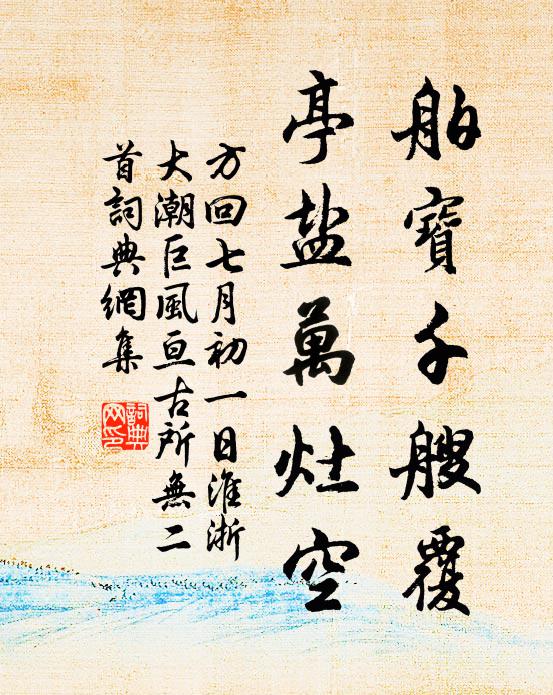 舶寶千艘覆
亭盐萬灶空
方回七月初一日淮浙
大潮巨風亘古所無二
首詞典網集
詞典
网印